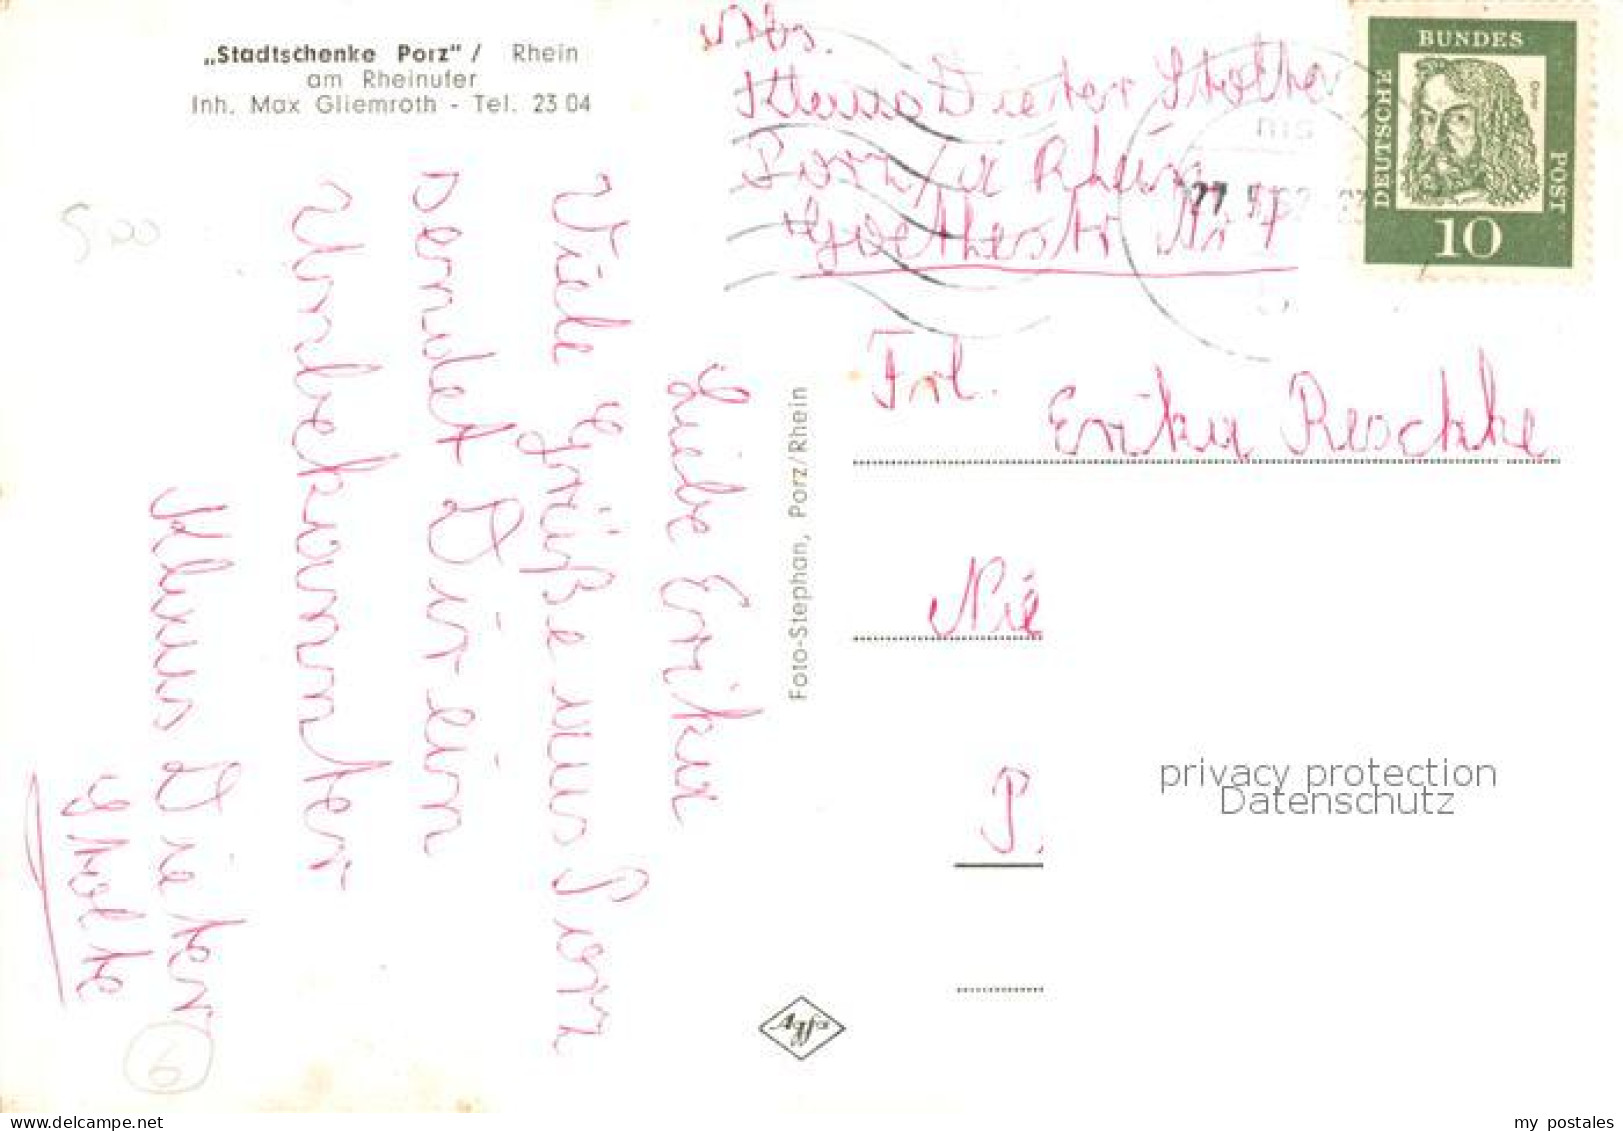 „Stadtschenke Porz" / Rhein
am Rheinufer
Inh. Max Gliemroth - Tel. 23 04
500
Liebe Erika
Viele Grüße aus Porz
sendet Dir ein
Unbekannter
Klaus Dieter
Stolte
6
Foto-Stephan, Porz/Rhein
Agfa
Abs.
Klaus Dieter Stolte
Porz/a Rhein
Goethestr Nr 7
DEUTSCHE
BUNDES
POST
Dürer
10
Frl.
Erika Reschke
Nie
P.
privacy protection
Datenschutz
www.delcampe.net
my_postales